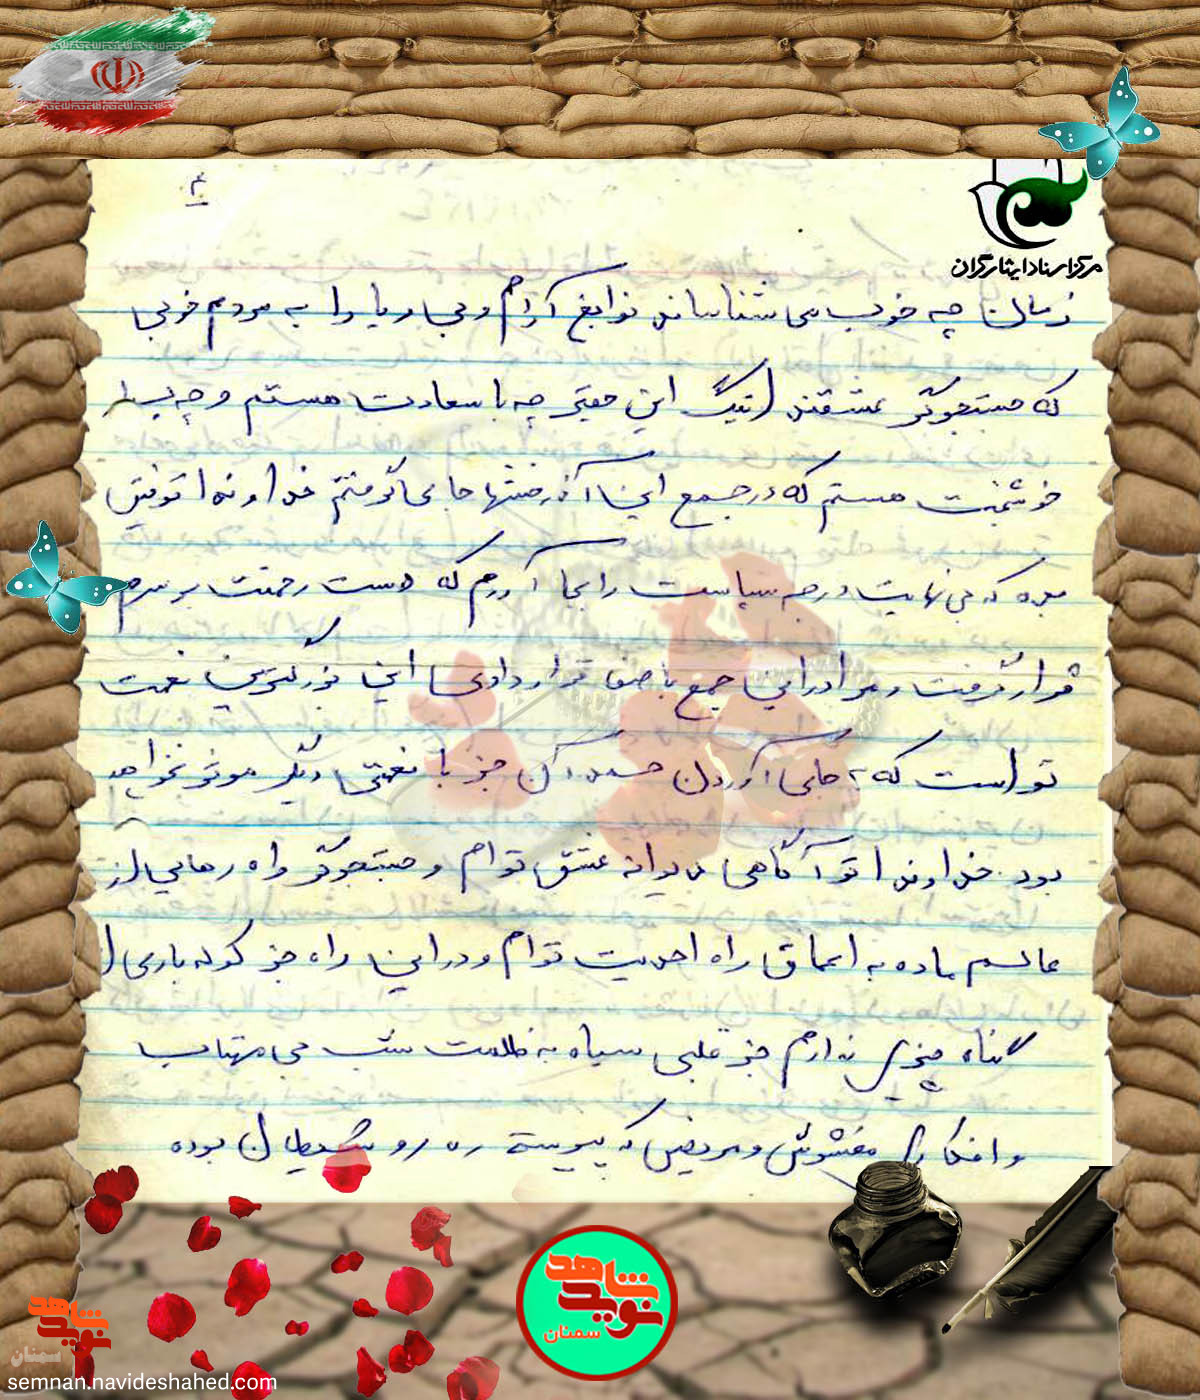 ۳
مرکز اسناد ایثارگران
زمان چه خوب می شناساند نوابغ آرام و بی ریا را به مردم خوبی
که جستجوگر عشقند اینک این حقیر چه با سعادت هستم و چه بسیار
خوشبخت هستم که در جمع این جای گرفتم خداوندا توفیق
بده که بی نهایت درجه سپاست را بجا آورم که دست رحمتت بر سرم
قرار گرفت و مرا در این جمع با صفا قرار دادی این بزرگترین نعمت
تو است که بجای آوردن حمد آن جز با نعمتی دیگر موثر نخواهد
بود. خداوندا تو آگاهی دیوانه عشق توام و جستجوگر راه رهایی از
عالم ماده به اعماق راه احدیت توام و در این راه جز کوله باری از
گناه چیزی ندارم جز قلبی سیاه به ظلمت شب بی مهتاب
و افکاری مغشوش و مریض که پیوسته ره رو شیطان بوده
نوید شاهد
سمنان
نوید شاهد
سمنان
semnan.navideshahed.com